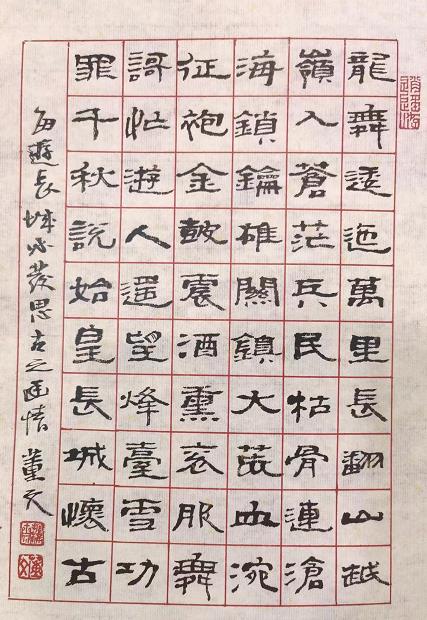 龍舞逶迤萬里長翻山越
嶺入蒼茫兵民枯骨連滄
海鎖鑰雄關鎮大荒血涴
征袍金鼓震酒熏衮服舞
謌忙遊人遥望烽臺雪功
罪千秋說始皇長城懷古
每遊長城必發思古之幽情 董文